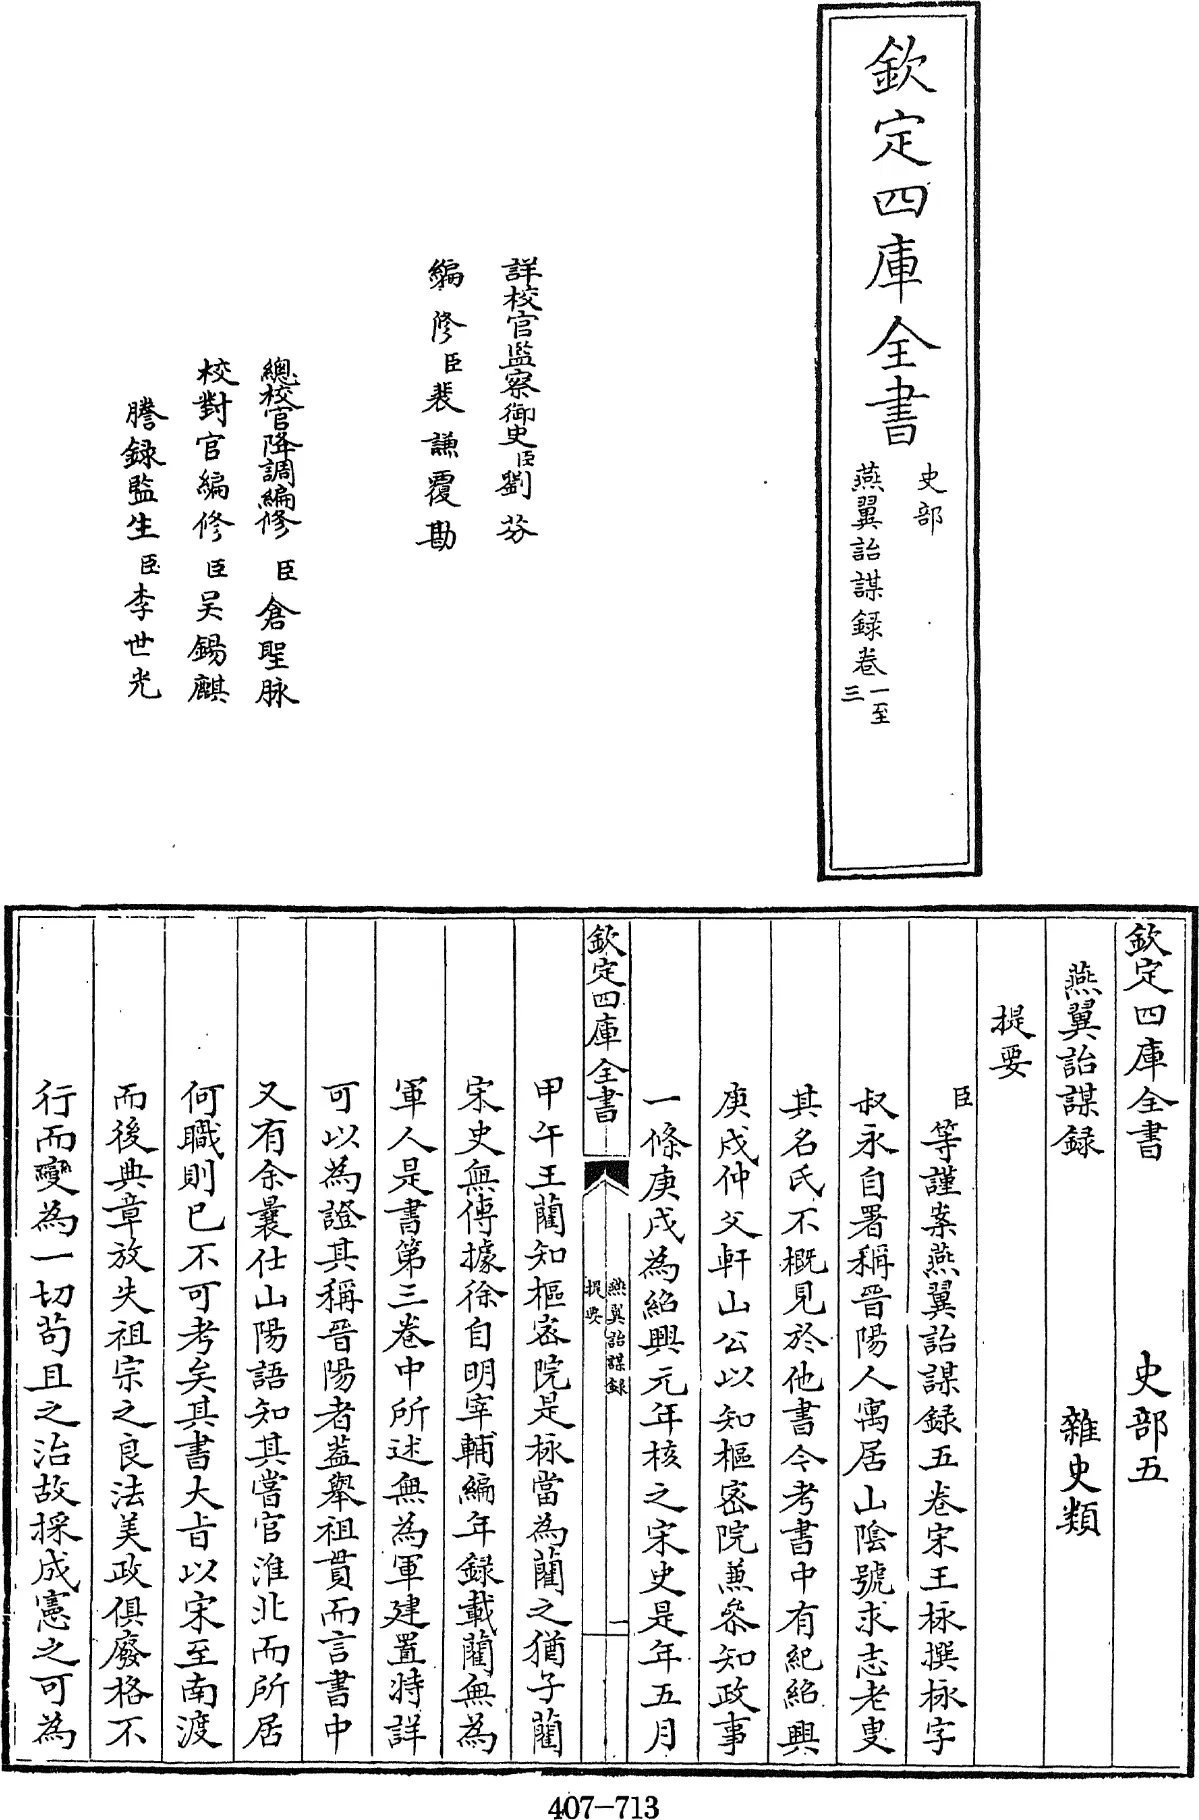 欽定四庫全書
史部
燕翼詒謀録卷一至三
詳校官監察御史臣劉芬
編修臣裴謙覆勘
總校官降調編修臣倉聖脉
校對官編修臣吳錫麒
謄録監生臣李世光
欽定四庫全書 史部五
燕翼詒謀録 雜史類
提要
臣等謹案燕翼詒謀録五卷宋王栐撰栐字
叔永自署稱晉陽人寓居山陰號求志老叟
其名氏不概見於他書今考書中有紀紹興
庚戌仲父軒山公以知樞宻院兼叅知政事
一條庚戌為紹興元年核之宋史是年五月
欽定四庫全書
燕翼詒謀録
提要
一
甲午王藺知樞宻院是栐當為藺之猶子藺
宋史無傳據徐自明宰輔編年録載藺無為
軍人是書第三卷中所述無為軍建置特詳
可以為證其稱晉陽者葢舉祖貫而言書中
又有余曩仕山陽語知其嘗官淮北而所居
何職則已不可考矣其書大㫖以宋至南渡
而後典章放失祖宗之良法美政俱廢格不
行而變為一切茍且之治故採成憲之可為
407-713